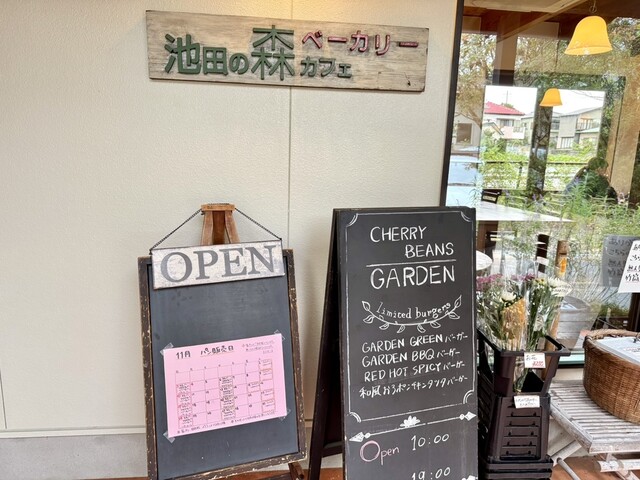 池田の森ベーカリーカフェ
OPEN
11月 パン販売日
CHERRY
BEANS
GARDEN
Limited burgers
GARDEN GREENバーガー
GARDEN BBQバーガー
RED HOT SPICYバーガー
和風おろポンチキンタツタバーガー
Open 10:00
19:00